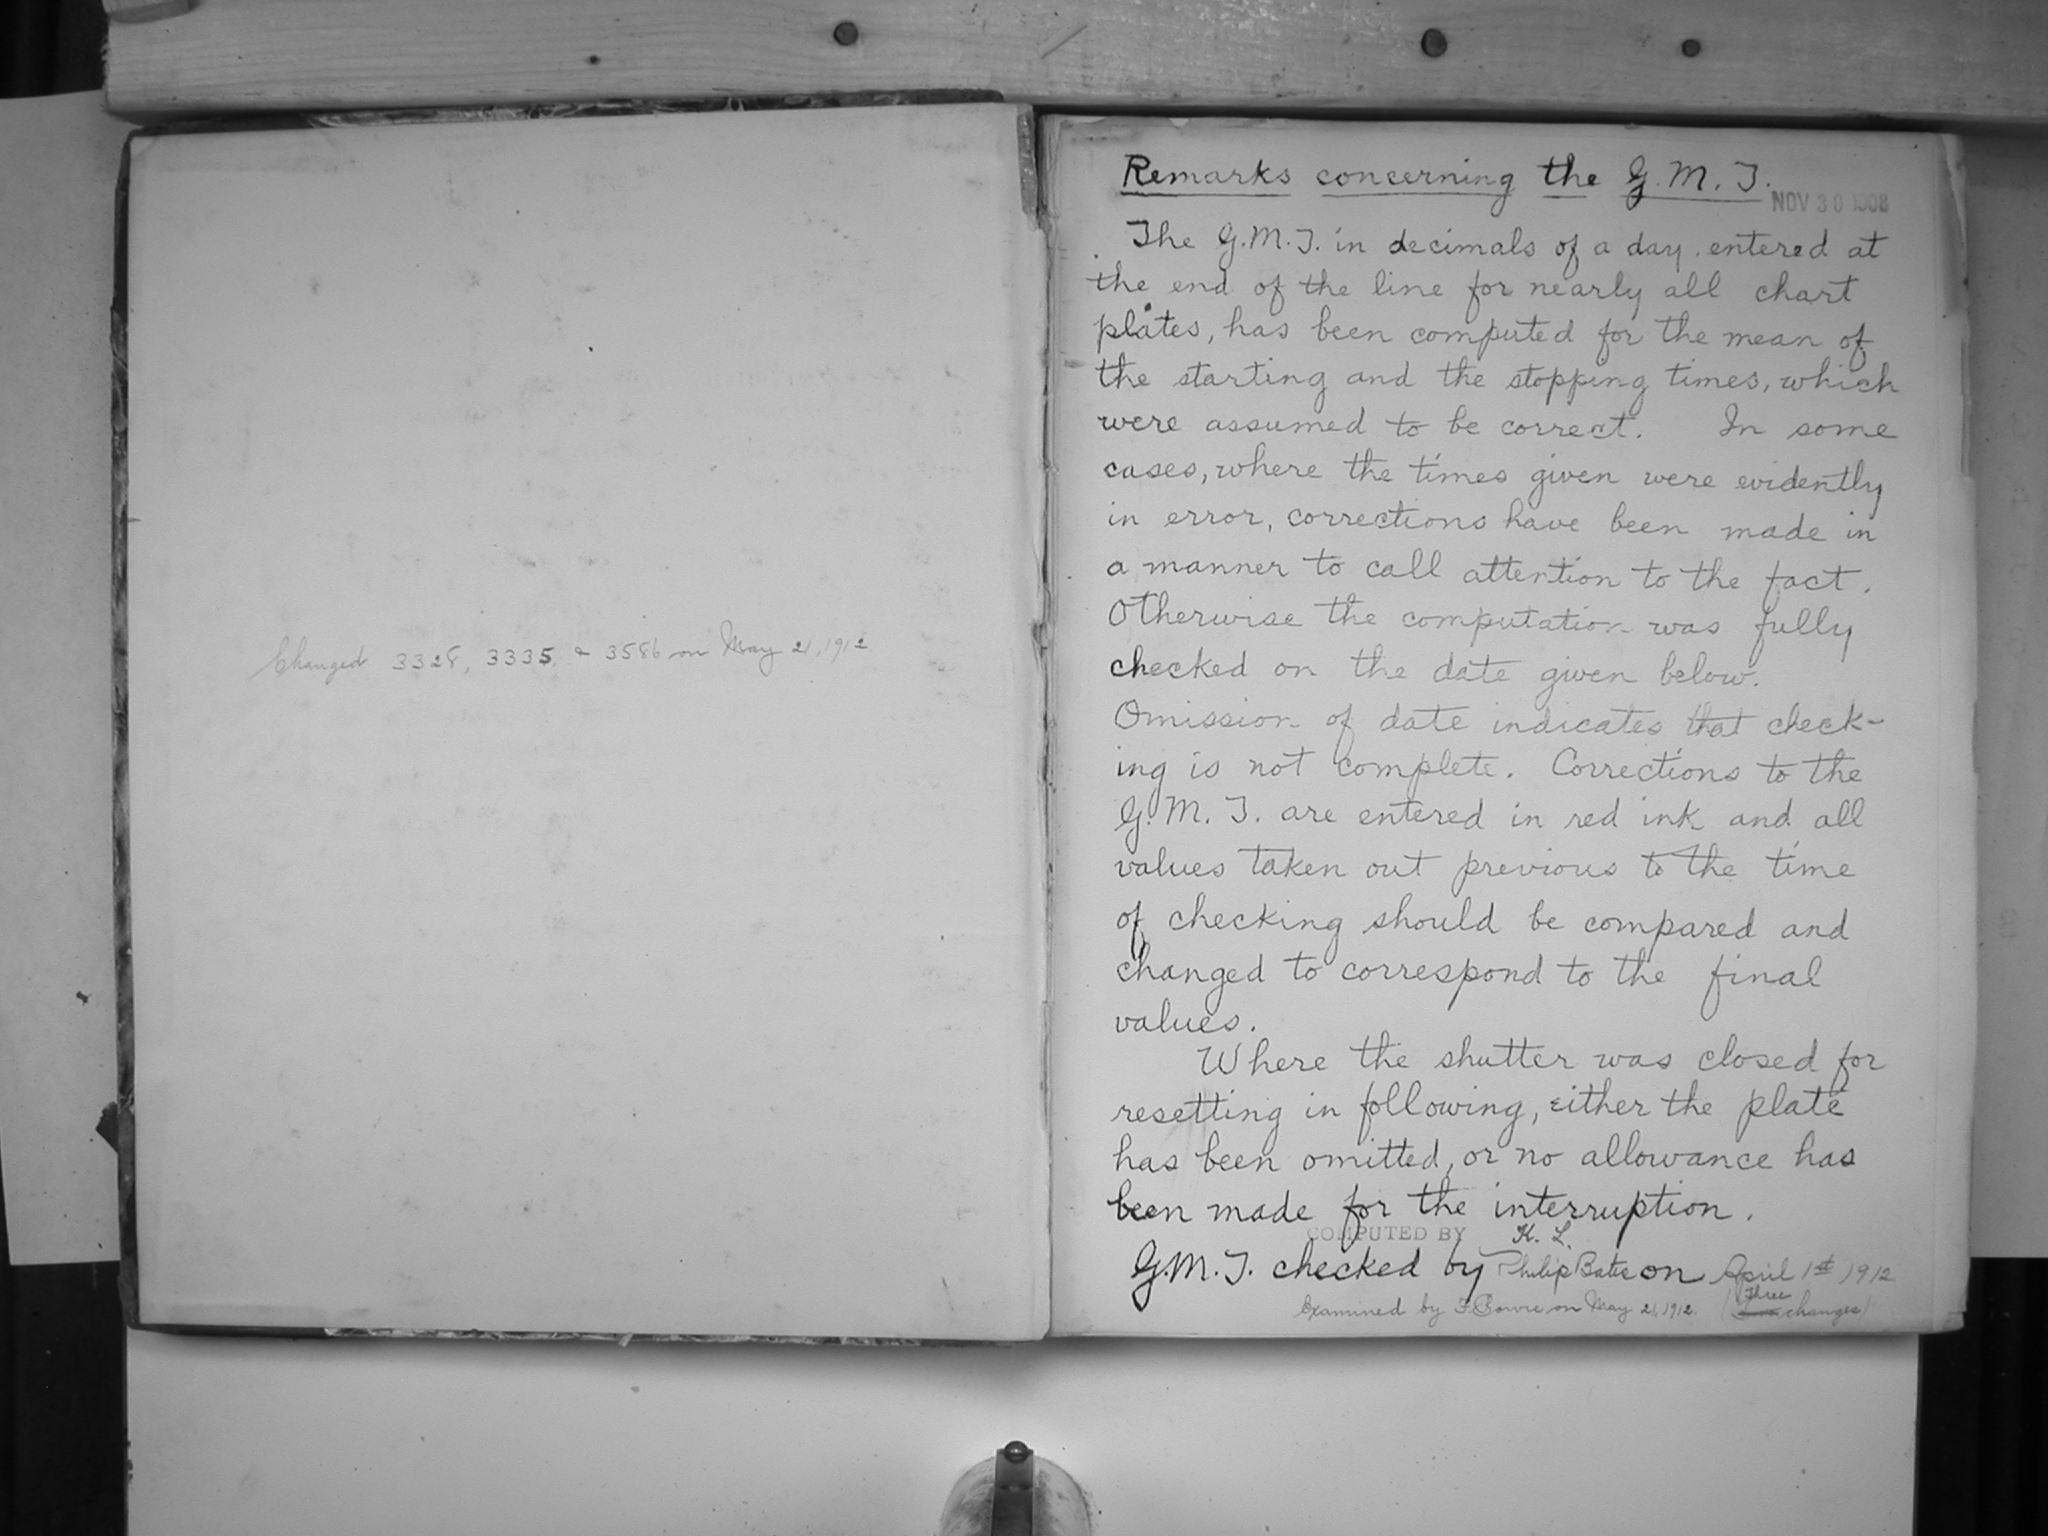 Changed 3328, 3335, & 3586 on May 21, 1912
Remarks concerning the G. M. T.
NOV 30 1908
The G.M.T. in decimals of a day, entered at
the end of the line for nearly all chart
plates, has been computed for the mean of
the starting and the stopping times, which
were assumed to be correct. In some
cases, where the times given were evidently
in error, corrections have been made in
a manner to call attention to the fact.
Otherwise the computation was fully
checked on the date given below.
Omission of date indicates that check-
ing is not complete. Corrections to the
G. M. T. are entered in red ink and all
values taken out previous to the time
of checking should be compared and
changed to correspond to the final
values.
Where the shutter was closed for
resetting in following, either the plate
has been omitted, or no allowance has
been made for the interruption.
COMPUTED BY K. L.
G.M.T. checked by Philip Bates on April 1st 1912
Examined by F. Bowie on May 21, 1912. (Three changes)